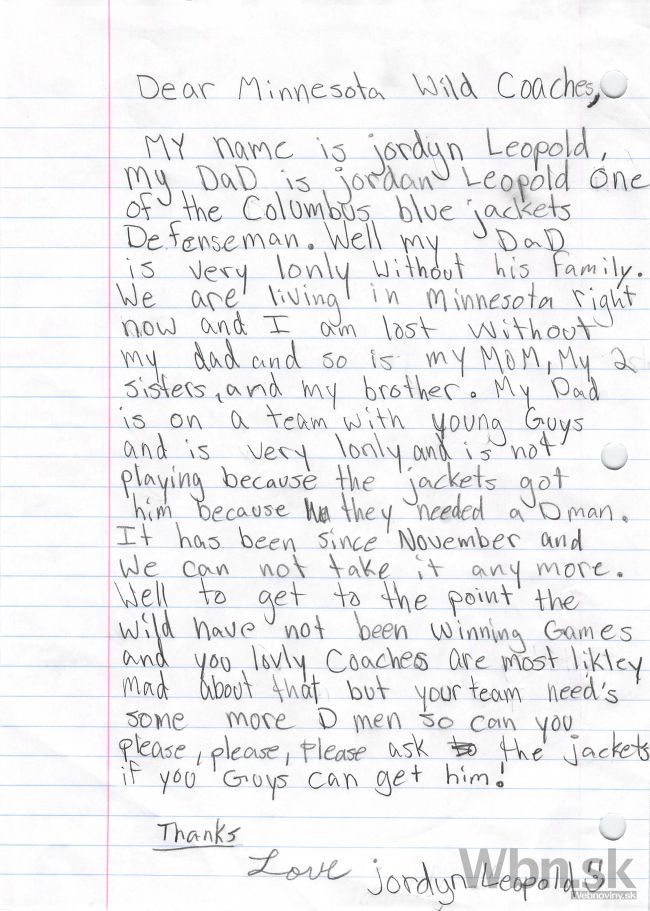 Dear Minnesota Wild Coaches,
MY name is jordyn Leopold,
my DaD is jordan Leopold One
of the Columbus blue jackets
Defenseman. Well my DaD
is very lonly without his family.
We are living in minnesota right
now and I am lost without
my dad and so is my MOM, My 2
sisters, and my brother. My Dad
is on a team with young Guys
and is very lonly and is not
playing because the jackets got
him because they needed a D man.
It has been since November and
We can not take it any more.
Well to get to the point the
wild have not been winning Games
and you lovly Coaches are most likley
mad about that but your team need's
some more D men so can you
please, please, Please ask the jackets
if you Guys can get him!
Thanks
Love jordyn Leopold
Wbn.sk
Webnoviny.sk